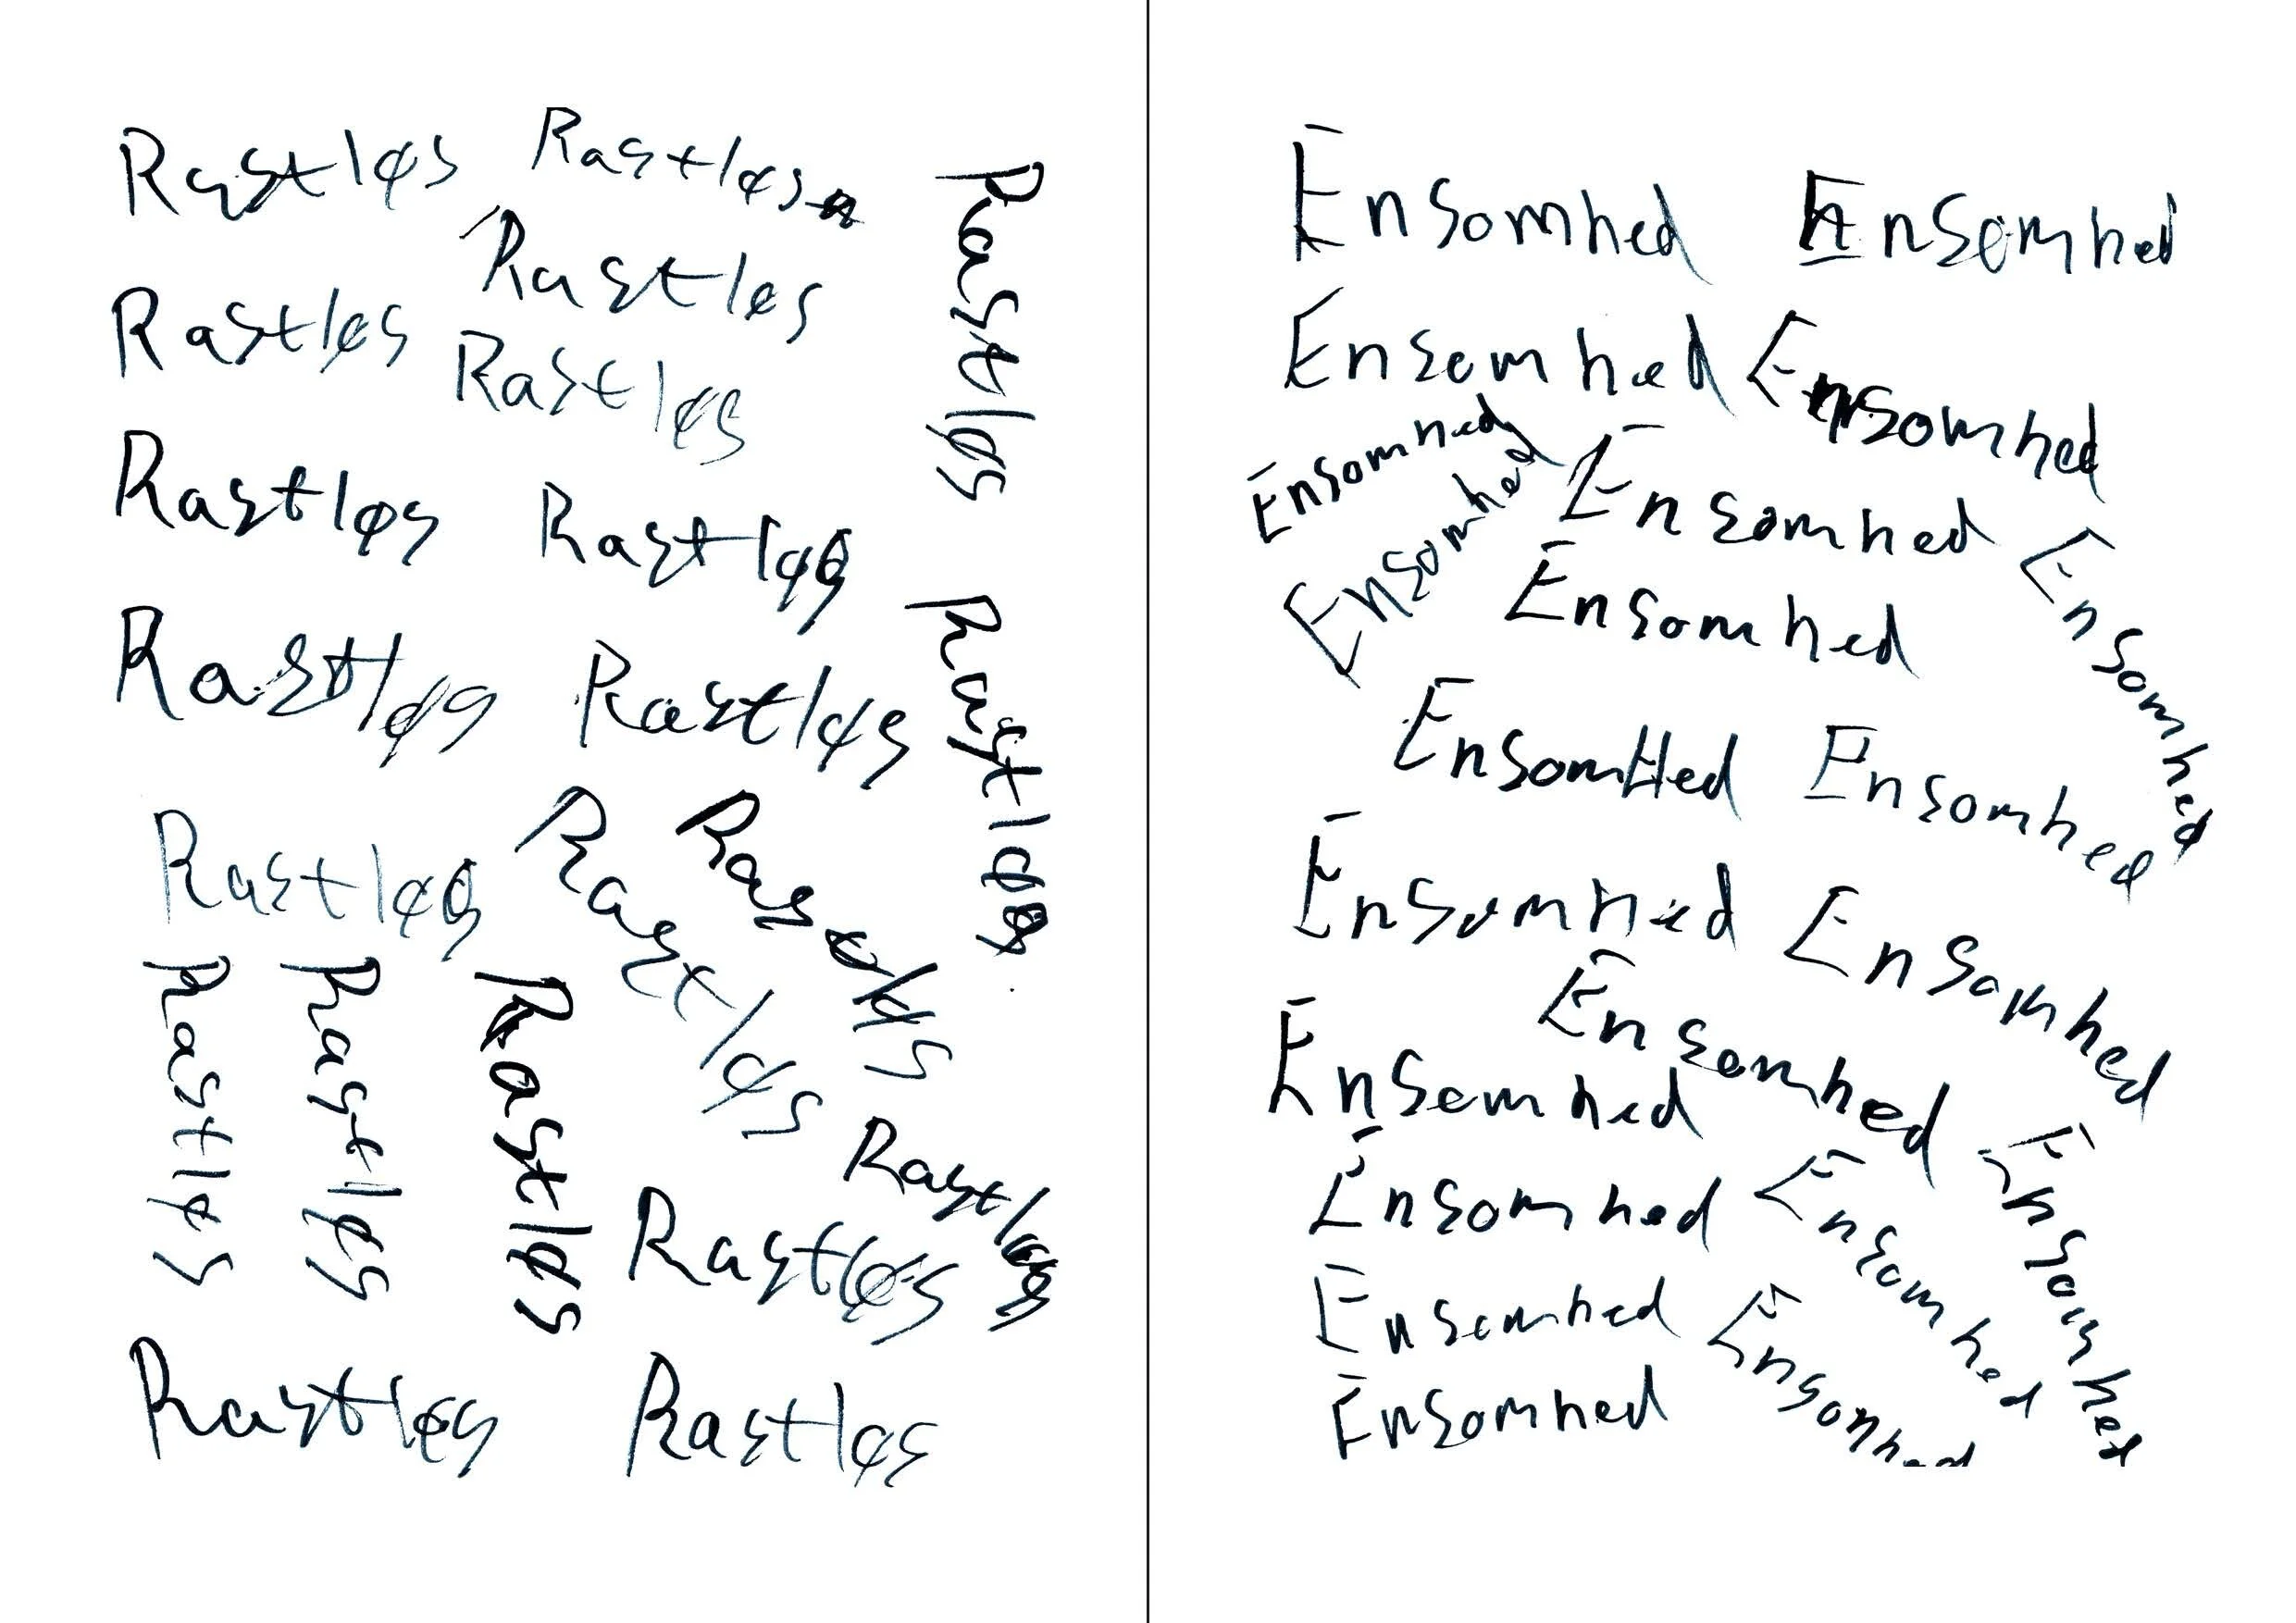 Rastløs Rastløs
Rastløs
Rastløs
Rastløs
Rastløs
Rastløs Rastløs
Rastløs
Rastløs Rastløs
Rastløs
Rastløs
Rastløs
Rastløs
Rastløs
Rastløs
Rastløs
Rastløs
Rastløs
Rastløs Rastløs
Ensomhed Ensomhed
Ensomhed Ensomhed
Ensomhed
Ensomhed
Ensomhed
Ensomhed
Ensomhed
EnsomHed Ensomhed
Ensomhed Ensomhed
Ensomhed
Ensomhed
Ensomhed Ensomhed
Ensomhed
Ensomhed Ensomhed
Ensomhed